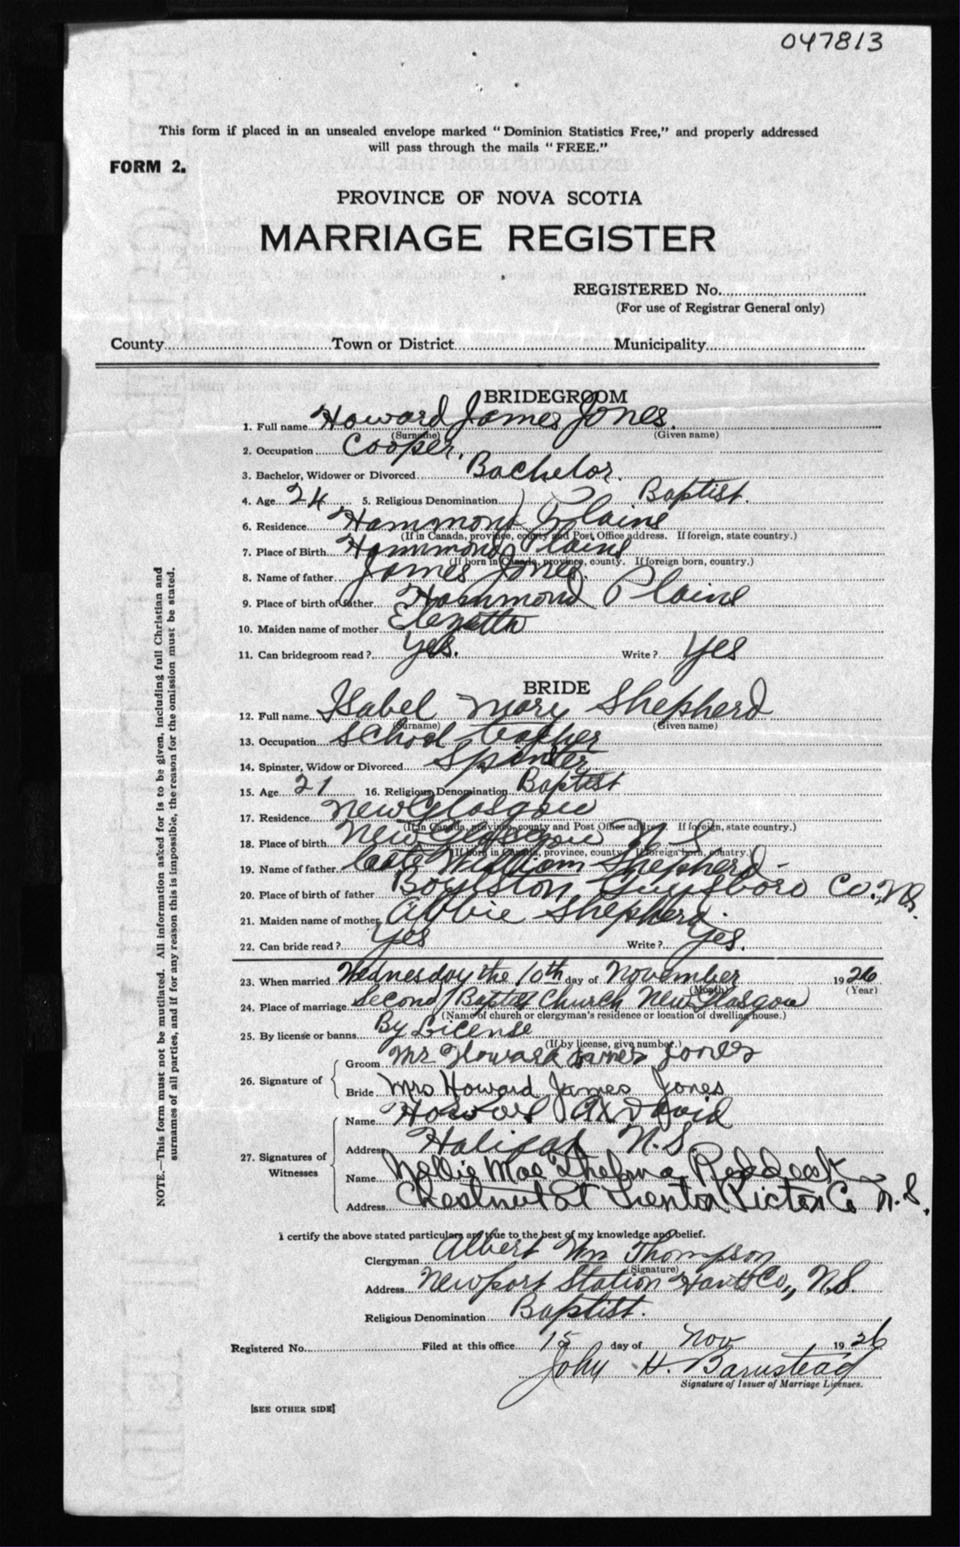 047813
This form if placed in an unsealed envelope marked "Dominion Statistics Free," and properly addressed
will pass through the mails "FREE."
FORM 2.
PROVINCE OF NOVA SCOTIA
MARRIAGE REGISTER
REGISTERED No.
(For use of Registrar General only)
County Town or District Municipality
BRIDEGROOM
1. Full name Howard James Jones.
(Surname) (Given name)
2. Occupation Cooper.
3. Bachelor, Widower or Divorced Bachelor.
4. Age 24 5. Religious Denomination Baptist.
6. Residence Hammond Plains
(If in Canada, province, county and Post Office address. If foreign, state country.)
7. Place of Birth Hammond Plains
(If born in Canada, province, county. If foreign born, country.)
8. Name of father James Jones.
9. Place of birth of father Hammond Plains
10. Maiden name of mother
11. Can bridegroom read? Yes. Write? Yes
BRIDE
12. Full name Isabel Mary Shepherd
(Surname) (Given name)
13. Occupation School teacher
14. Spinster, Widow or Divorced Spinster
15. Age 21 16. Religious Denomination Baptist
17. Residence New Glasgow
(If in Canada, province, county and Post Office address. If foreign, state country.)
18. Place of birth New Glasgow N S
(If born in Canada, province, county. If foreign born, country.)
19. Name of father Late William Shepherd
20. Place of birth of father Boylston Guysboro Co. N.S.
21. Maiden name of mother Abbie Shepherd.
22. Can bride read? Yes Write? Yes.
23. When married Wednesday the 10th day of November 1926
(Month) (Year)
24. Place of marriage Second Baptist Church New Glasgow
(Name of church or clergyman's residence or location of dwelling house.)
25. By license or banns By License
(If by license, give number.)
26. Signature of
Groom Mr Howard James Jones
Bride Mrs Howard James Jones
27. Signatures of Witnesses
Name Howard David
Address Halifax N.S.
Name Nellie Mae Thelma
Address Chestnut St Trenton Pictou Co N.S.
I certify the above stated particulars are true to the best of my knowledge and belief.
Clergyman Albert Wm Thompson
(Signature)
Address Newport Station Hants Co., N.S.
Religious Denomination Baptist.
Registered No. Filed at this office 15 day of Nov 1926
John H. Barnstead
Signature of Issuer of Marriage Licenses.
[SEE OTHER SIDE]
NOTE.—This form must not be mutilated. All information asked for is to be given, including full Christian and
surnames of all parties, and if for any reason this is impossible, the reason for the omission must be stated.